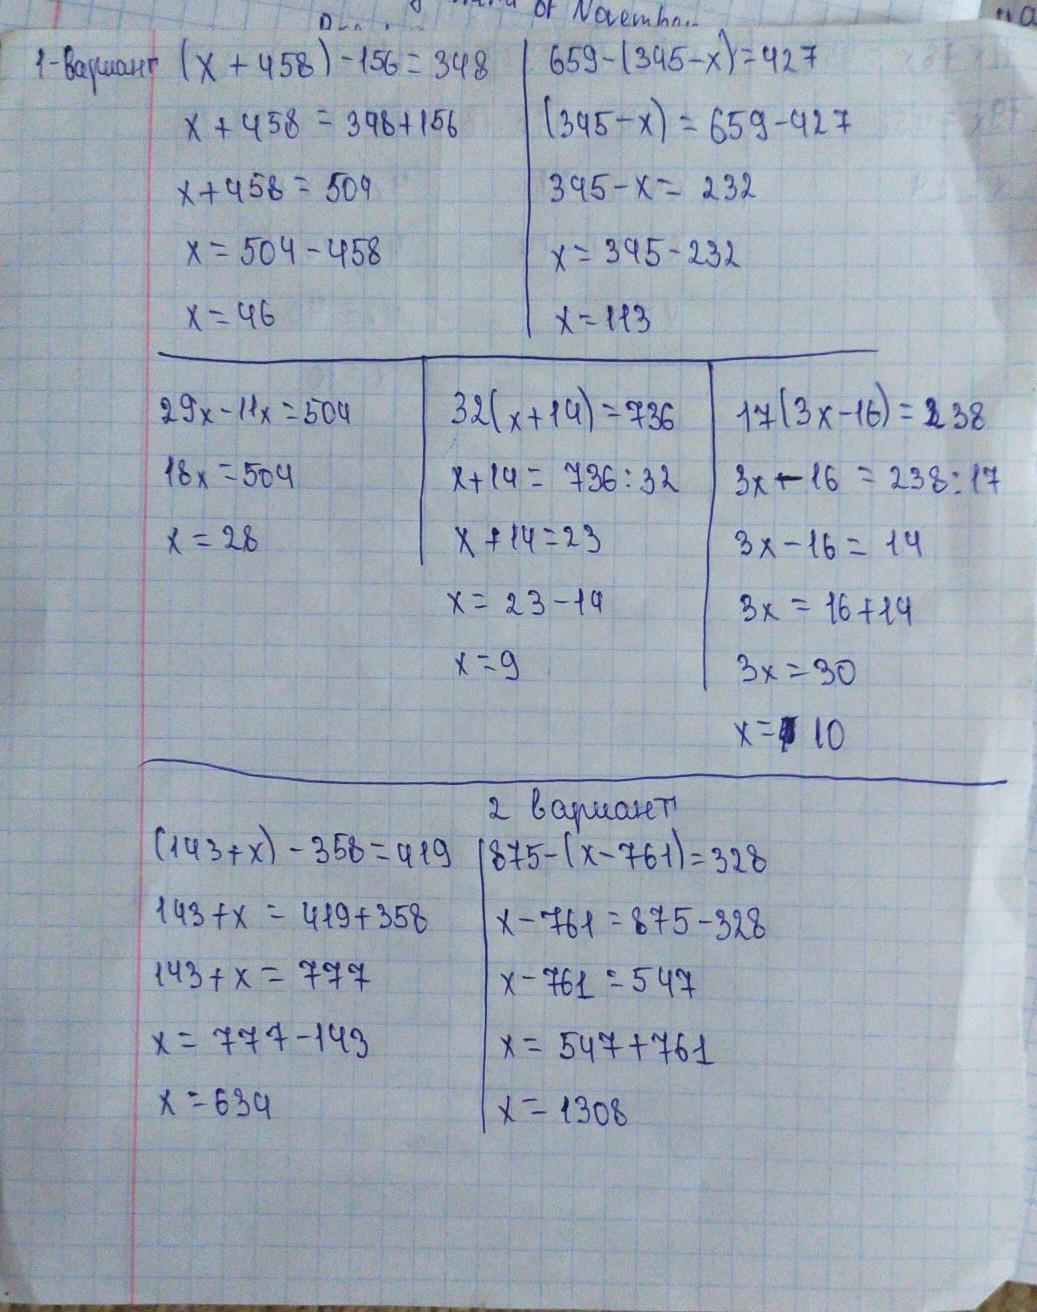 of November
1-вариант (x + 458) - 156 = 348
x + 458 = 348 + 156
x + 458 = 504
x = 504 - 458
x = 46
659 - (345 - x) = 427
(345 - x) = 659 - 427
345 - x = 232
x = 345 - 232
x = 113
29x - 11x = 504
18x = 504
x = 28
32(x + 14) = 736
x + 14 = 736 : 32
x + 14 = 23
x = 23 - 14
x = 9
17(3x - 16) = 238
3x - 16 = 238 : 17
3x - 16 = 14
3x = 16 + 14
3x = 30
x = 10
2 вариант
(143 + x) - 358 = 419
143 + x = 419 + 358
143 + x = 777
x = 777 - 143
x = 634
875 - (x - 761) = 328
x - 761 = 875 - 328
x - 761 = 547
x = 547 + 761
x = 1308